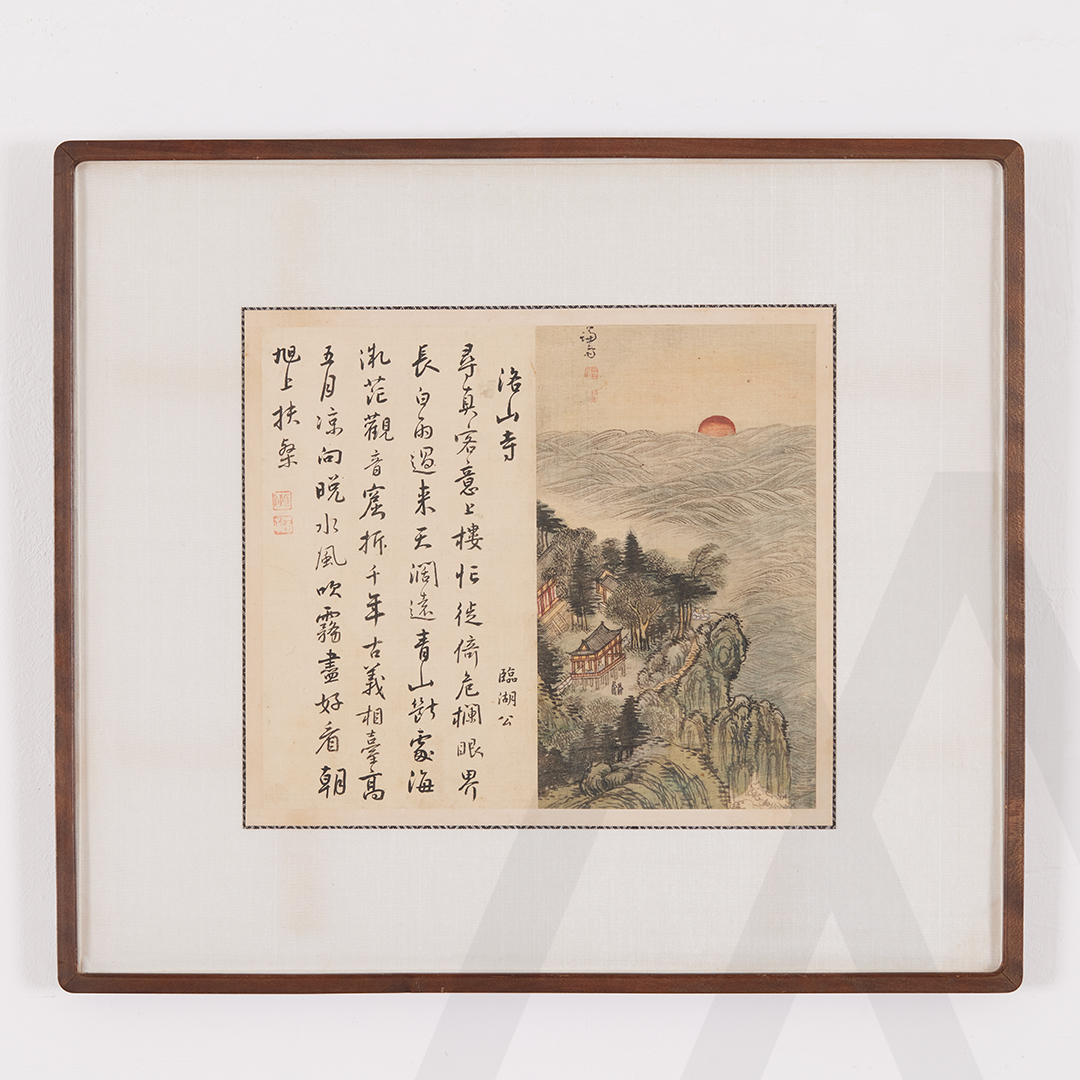 謙齋
洛山寺
臨湖公
尋真客意上樓忙徙倚危欄眼界
長白雨過来天濶遠青山斷處海
茫觀音窟拆千年古義相臺高
五月凉向晩水風吹霧盡好看朝
旭上扶桒